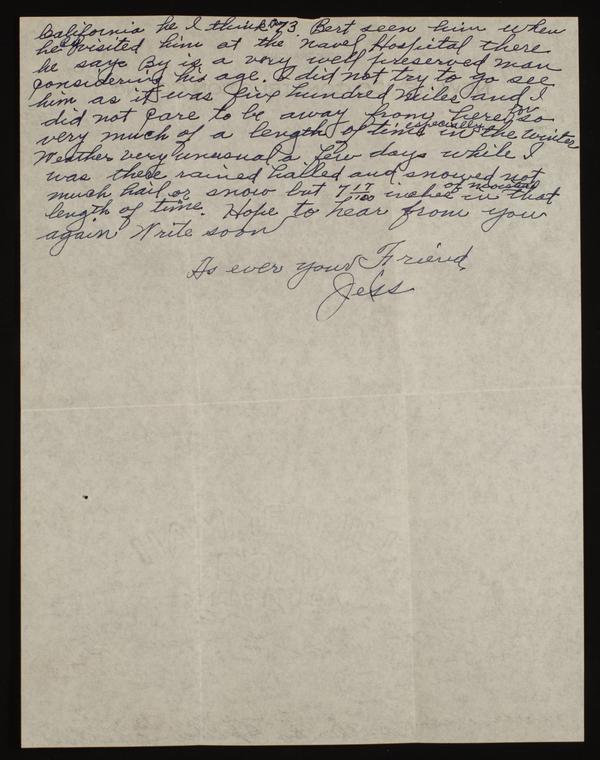 California he I think 73 Bert seen him when
he visited him at the Naval Hospital there
he says By is a very well preserved man
considering his age. I did not try to go see
him as it was five hundred miles and I
did not care to be away from here for so
very much of a length of time especially in the winter
Weather very unusual a few days while I
was there rained hailed and snowed not
much hail or snow but 7 17/100 inches of moisture in that
length of time. Hope to hear from you
again Write soon
As ever your Friend,
Jess